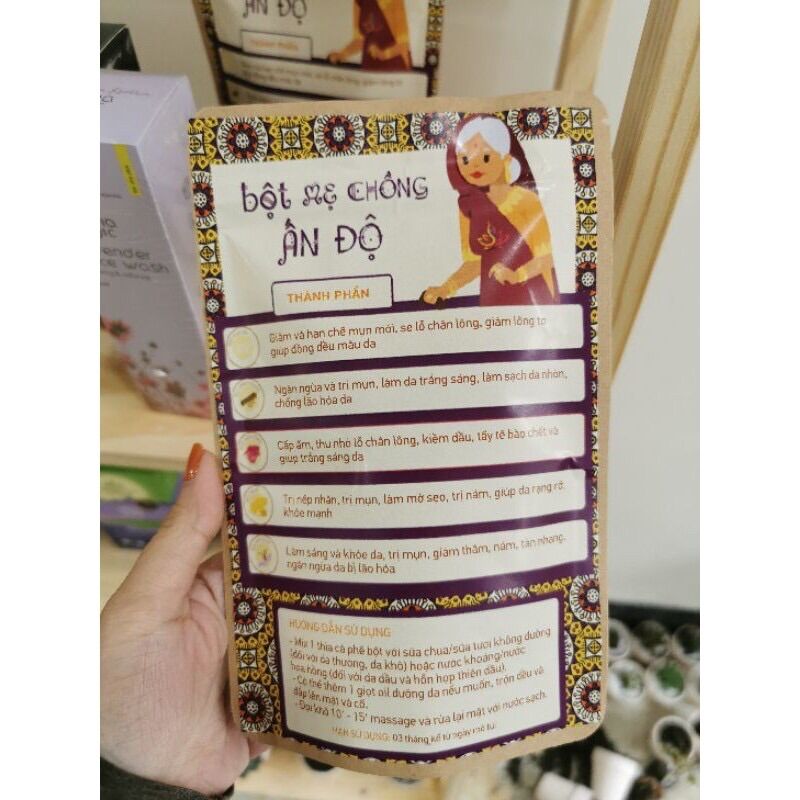 ẤN ĐỘ
THÀNH PHẦN
bột MẸ CHỒNG
ẤN ĐỘ
THÀNH PHẦN
Giảm và hạn chế mụn mới, se lỗ chân lông, giảm lông tơ
giúp đồng đều màu da
Ngăn ngừa và trị mụn, làm da trắng sáng, làm sạch da nhờn,
chống lão hóa da
Cấp ẩm, thu nhỏ lỗ chân lông, kiềm dầu, tẩy tế bào chết và
giúp trắng sáng da
Trị nếp nhăn, trị mụn, làm mờ sẹo, trị nám, giúp da rạng rỡ,
khỏe mạnh
Làm sáng và khỏe da, trị mụn, giảm thâm, nám, tàn nhang,
ngăn ngừa da bị lão hóa
HƯỚNG DẪN SỬ DỤNG
- Mỗi 1 thìa cà phê bột với sữa chua/sữa tươi không đường
(đối với da thường, da khô) hoặc nước khoáng/nước
hoa hồng (đối với da dầu và hỗn hợp thiên dầu).
- Có thể thêm 1 giọt oil dưỡng da nếu muốn, trộn đều và
đắp lên mặt và cổ.
- Đợi khô 10' - 15' massage và rửa lại mặt với nước sạch.
HẠN SỬ DỤNG: 03 tháng kể từ ngày mở túi